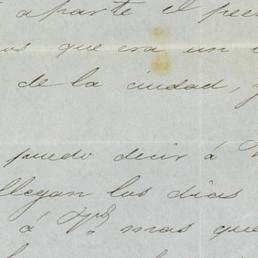 aparte el
que era un
de la ciudad, y
puedo decir á
llegan los dias
á Vds mas que